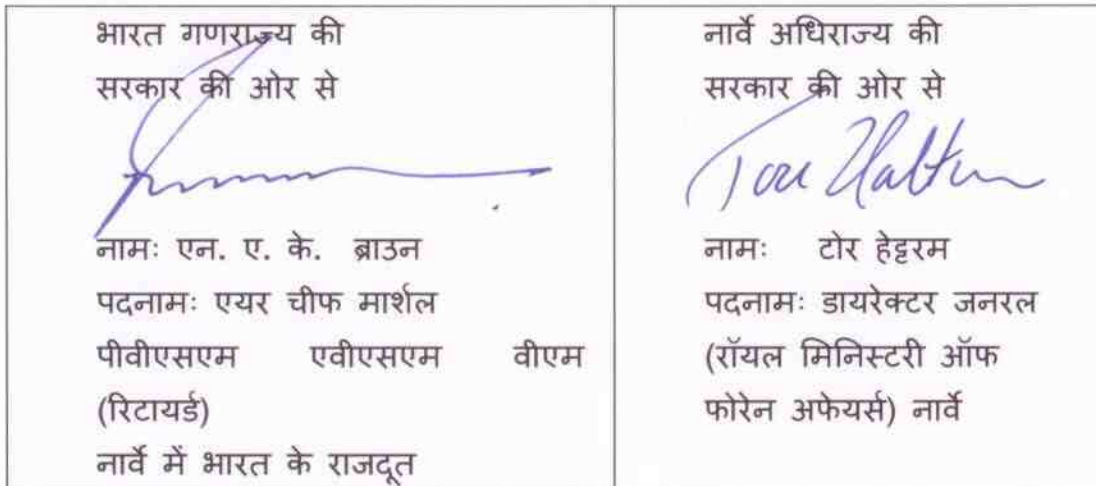 भारत गणराज्य की
सरकार की ओर से
नामः एन. ए. के. ब्राउन
पदनामः एयर चीफ मार्शल
पीवीएसएम एवीएसएम वीएम
(रिटायर्ड)
नार्वे में भारत के राजदूत
नार्वे अधिराज्य की
सरकार की ओर से
नामः टोर हेट्टरम
पदनामः डायरेक्टर जनरल
(रॉयल मिनिस्टरी ऑफ
फोरेन अफेयर्स) नार्वे